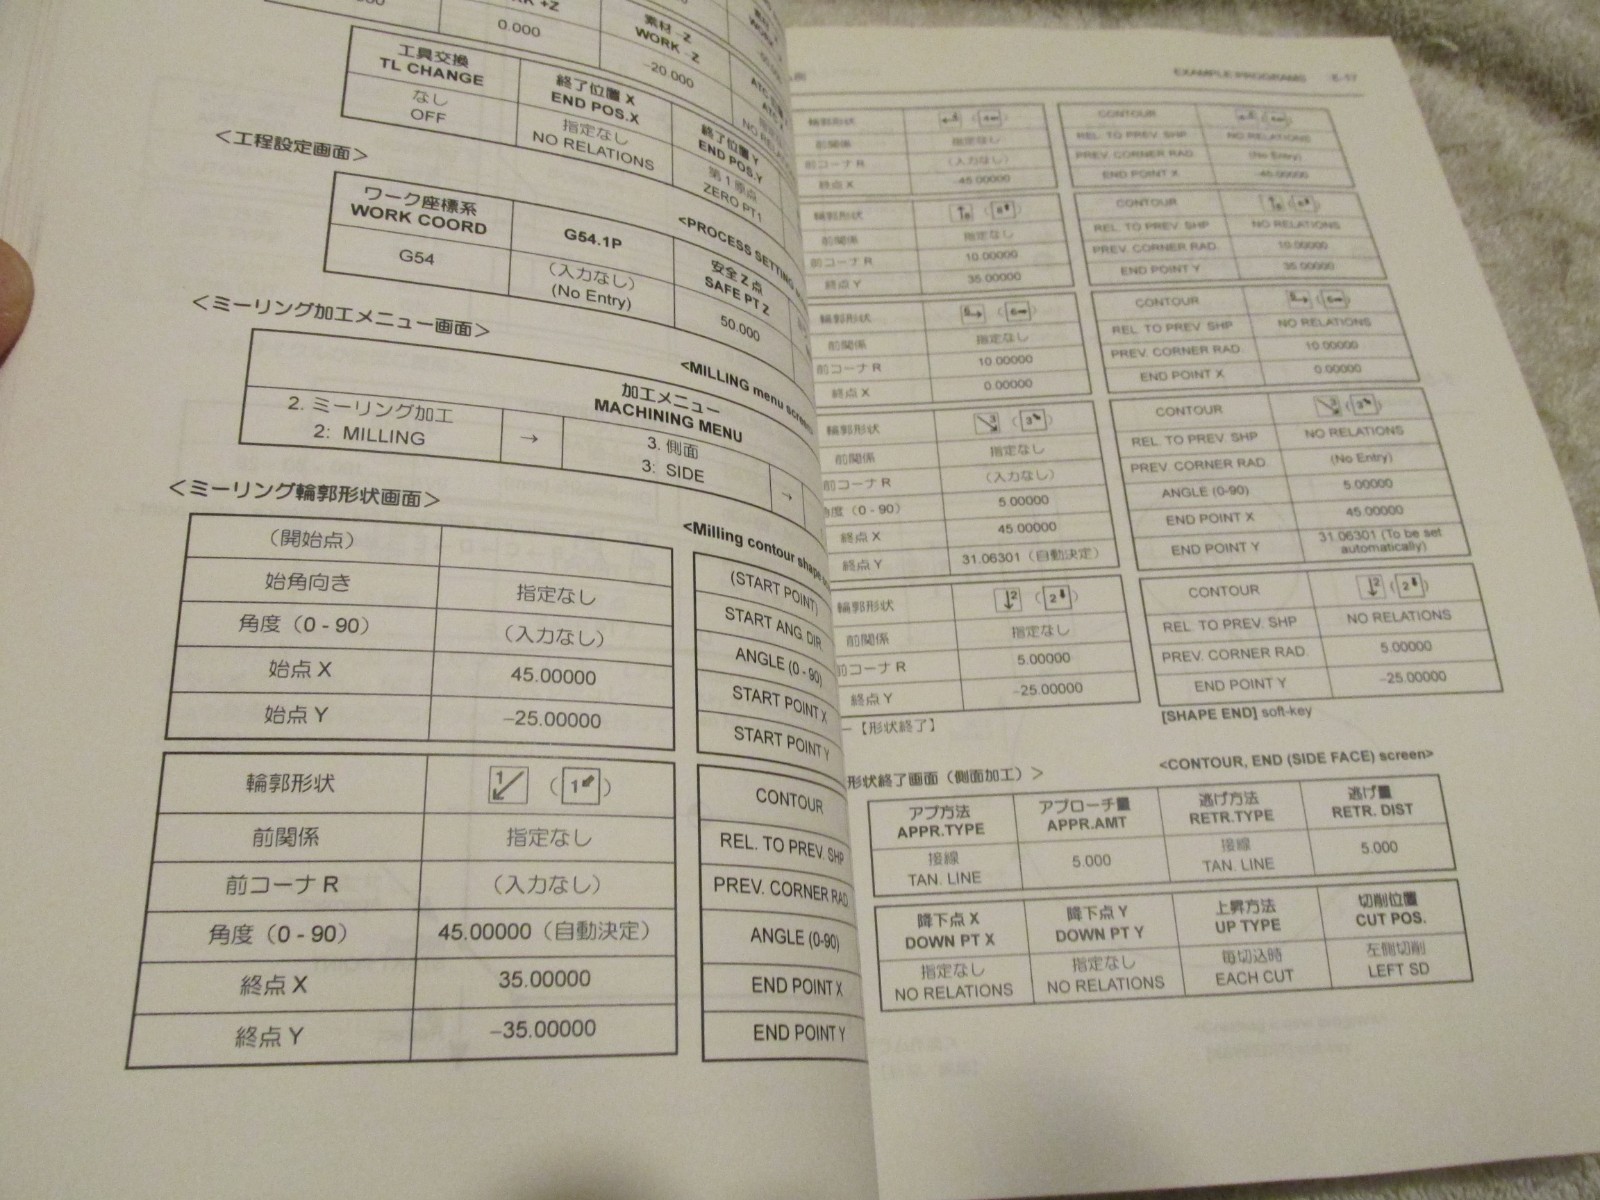 WORK +Z
0.000
素材 -Z
WORK -Z
-20.000
工具交換
TL CHANGE
終了位置 X
END POS.X
終了位置 Y
END POS.Y
なし
OFF
指定なし
NO RELATIONS
第1原点
ZERO PT1
＜工程設定画面＞
<PROCESS SETTING
ワーク座標系
WORK COORD
G54.1P
安全Z点
SAFE PT Z
G54
（入力なし）
(No Entry)
50.000
＜ミーリング加工メニュー画面＞
<MILLING menu screen
加工メニュー
MACHINING MENU
2. ミーリング加工
2: MILLING
→
3. 側面
3: SIDE
→
＜ミーリング輪郭形状画面＞
<Milling contour shape
（開始点）
始角向き 指定なし
角度（0 - 90） （入力なし）
始点 X 45.00000
始点 Y −25.00000
(START POINT)
START ANG. DIR
ANGLE (0 - 90)
START POINT X
START POINT Y
輪郭形状 1 （1）
前関係 指定なし
前コーナ R （入力なし）
角度（0 - 90） 45.00000（自動決定）
終点 X 35.00000
終点 Y −35.00000
CONTOUR
REL. TO PREV. SHP
PREV. CORNER RAD.
ANGLE (0-90)
END POINT X
END POINT Y
EXAMPLE PROGRAMS E-17
輪郭形状
前関係 指定なし
前コーナ R （入力なし）
終点 X −45.00000
CONTOUR
REL. TO PREV. SHP NO RELATIONS
PREV. CORNER RAD. (No Entry)
END POINT X −45.00000
輪郭形状
前関係 指定なし
前コーナ R 10.00000
終点 Y 35.00000
CONTOUR
REL. TO PREV. SHP NO RELATIONS
PREV. CORNER RAD. 10.00000
END POINT Y 35.00000
輪郭形状
前関係 指定なし
前コーナ R 10.00000
終点 X 0.00000
CONTOUR
REL. TO PREV. SHP NO RELATIONS
PREV. CORNER RAD. 10.00000
END POINT X 0.00000
輪郭形状 3 （3）
前関係 指定なし
前コーナ R （入力なし）
角度（0 - 90） 5.00000
終点 X 45.00000
終点 Y 31.06301（自動決定）
CONTOUR 3 (3)
REL. TO PREV. SHP NO RELATIONS
PREV. CORNER RAD. (No Entry)
ANGLE (0-90) 5.00000
END POINT X 45.00000
END POINT Y 31.06301 (To be set
automatically)
輪郭形状 2 （2）
前関係 指定なし
前コーナ R 5.00000
終点 Y −25.00000
CONTOUR 2 (2)
REL. TO PREV. SHP NO RELATIONS
PREV. CORNER RAD. 5.00000
END POINT Y −25.00000
ー【形状終了】
[SHAPE END] soft-key
形状終了画面（側面加工）＞
<CONTOUR, END (SIDE FACE) screen>
アプ方法
APPR.TYPE
アプローチ量
APPR.AMT
逃げ方法
RETR.TYPE
逃げ量
RETR. DIST
接線
TAN. LINE
5.000
接線
TAN. LINE
5.000
降下点 X
DOWN PT X
降下点 Y
DOWN PT Y
上昇方法
UP TYPE
切削位置
CUT POS.
指定なし
NO RELATIONS
指定なし
NO RELATIONS
毎切込時
EACH CUT
左側切削
LEFT SD